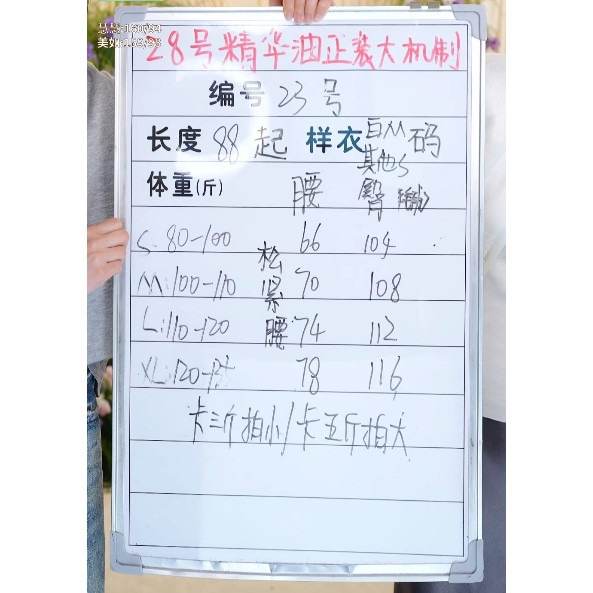 美如:168/98
28号精华油正装大机制
编号 23号
长度 88起 样衣 白M 其他S 码
体重(斤) 腰 臀
S: 80-100 66 104
M: 100-110 70 108
L: 110-120 74 112
XL: 120-134 78 116
松紧腰
卡三斤拍小/卡五斤拍大